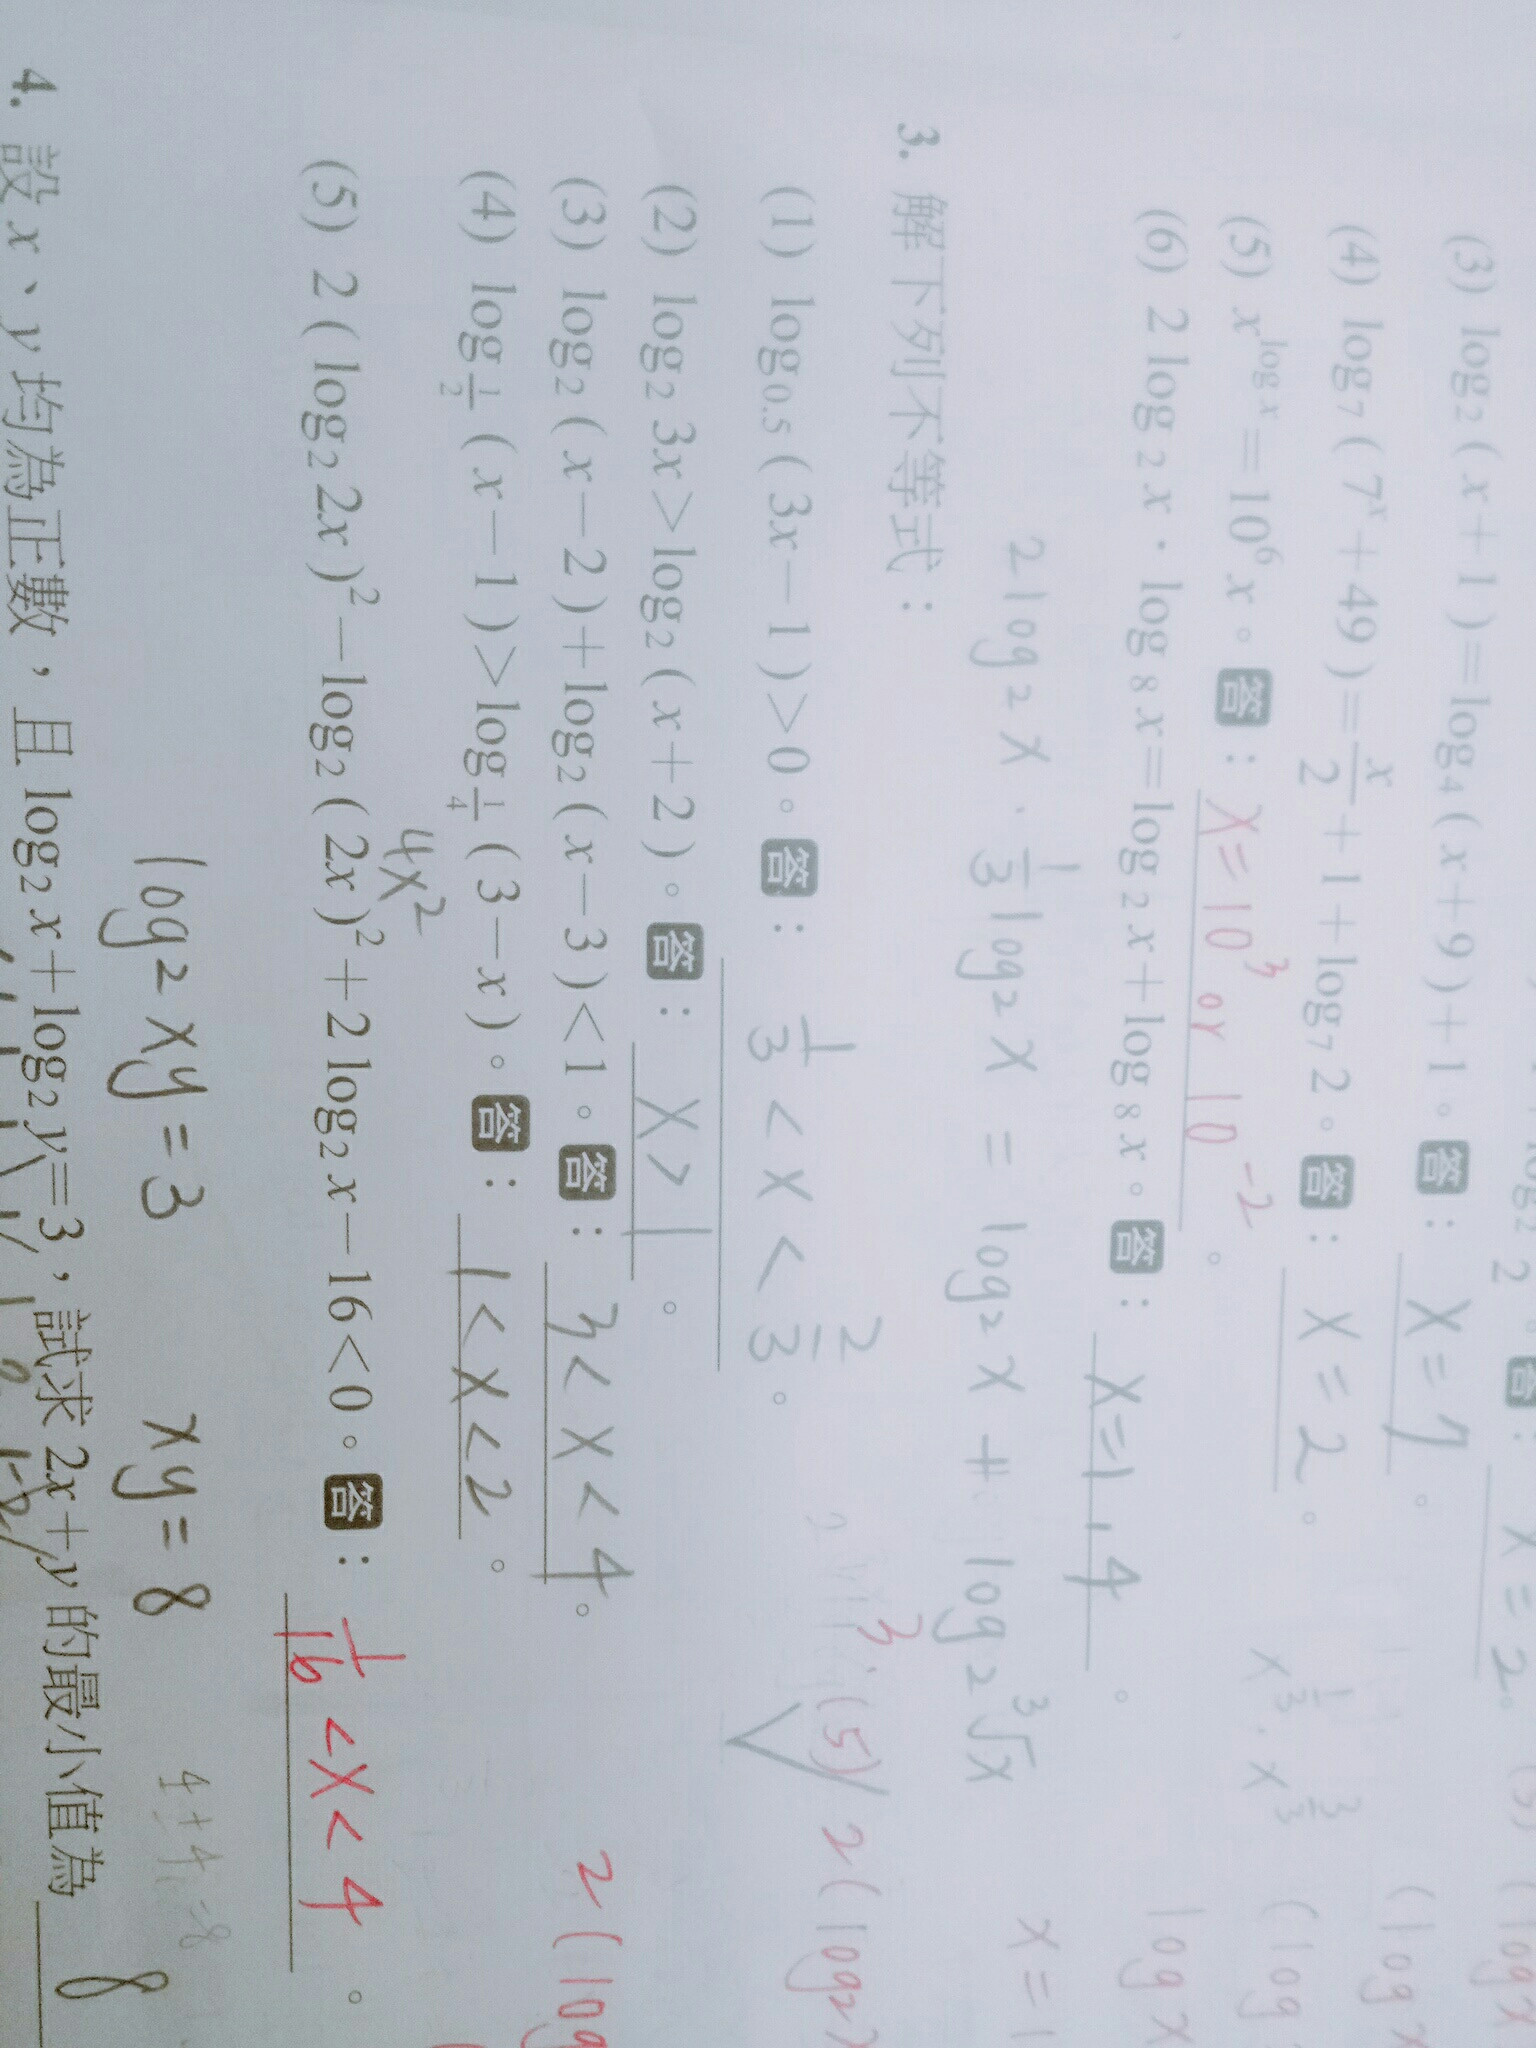 (3) log₂(x+1)=log₄(x+9)+1。答：x=7。
(4) log₇(7ˣ+49)=x/2+1+log₇2。答：x=2。
(5) x^(log x)=10⁶x。答：x=10³ or 10⁻²。
(6) 2log₂x·log₈x=log₂x+log₈x。答：x=1, 4。
2log₂x·1/3log₂x=log₂x+log₂³√x
x=1
3. 解下列不等式：
(1) log₀.₅(3x−1)>0。答：1/3<x<2/3。
(2) log₂3x>log₂(x+2)。答：x>1。
(3) log₂(x−2)+log₂(x−3)<1。答：3<x<4。
(4) log_(1/2)(x−1)>log_(1/4)(3−x)。答：1<x<2。
4x²
(5) 2(log₂2x)²−log₂(2x)²+2log₂x−16<0。答：1/16<x<4。
log₂xy=3 xy=8
4+4=8
4. 設x、y均為正數，且log₂x+log₂y=3，試求2x+y的最小值為8